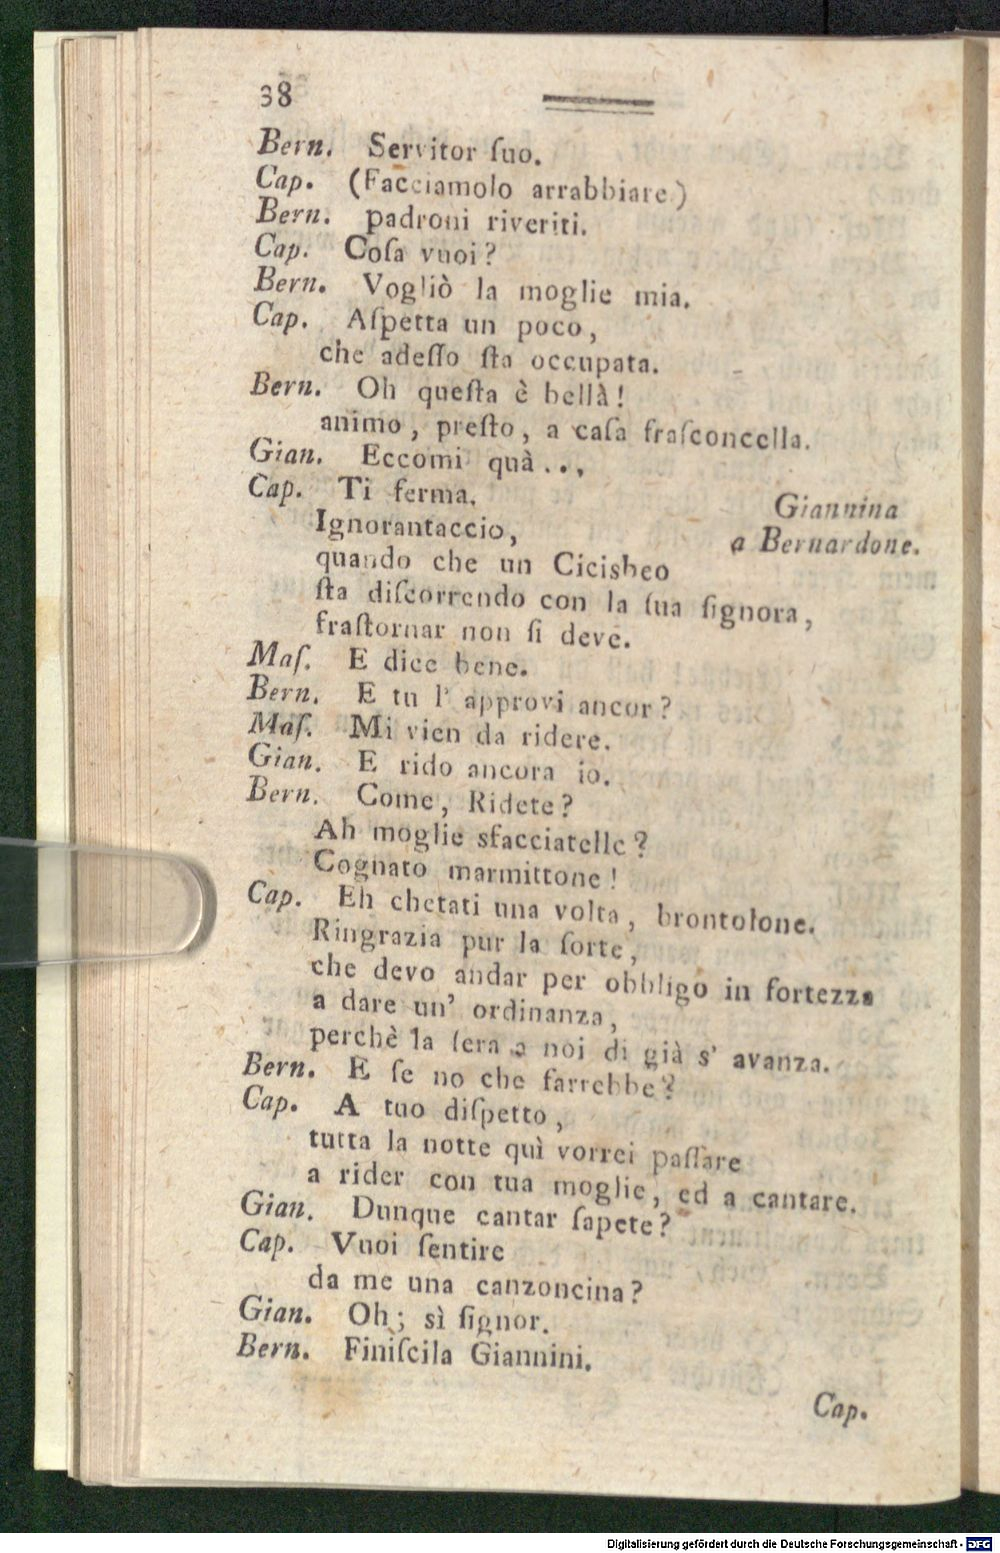 38
Bern. Servitor ſuo.
Cap. (Facciamolo arrabbiare)
Bern. padroni riveriti.
Cap. Coſa vuoi?
Bern. Vogliò la moglie mia.
Cap. Aſpetta un poco,
che adeſſo ſta occupata.
Bern. Oh queſta è bellà!
animo, preſto, a caſa fraſconcella.
Gian. Eccomi quà...
Cap. Ti ferma.
Giannina
Ignorantaccio,
a Bernardone.
quando che un Cicisbeo
ſta diſcorrendo con la ſua ſignora,
fraſtornar non ſi deve.
Maſ. E dice bene.
Bern. E tu l' approvi ancor?
Maſ. Mi vien da ridere.
Gian. E rido ancora io.
Bern. Come, Ridete?
Ah moglie sfacciatelle?
Cognato marmittone!
Cap. Eh chetati una volta, brontolone.
Ringrazia pur la ſorte,
che devo andar per obbligo in fortezza
a dare un' ordinanza,
perchè la ſera a noi di già s' avanza.
Bern. E ſe no che farrebbe?
Cap. A tuo diſpetto,
tutta la notte quì vorrei paſſare
a rider con tua moglie, ed a cantare.
Gian. Dunque cantar ſapete?
Cap. Vuoi ſentire
da me una canzoncina?
Gian. Oh; sì ſignor.
Bern. Finiſcila Giannini.
Cap.
Digitalisierung gefördert durch die Deutsche Forschungsgemeinschaft - DFG